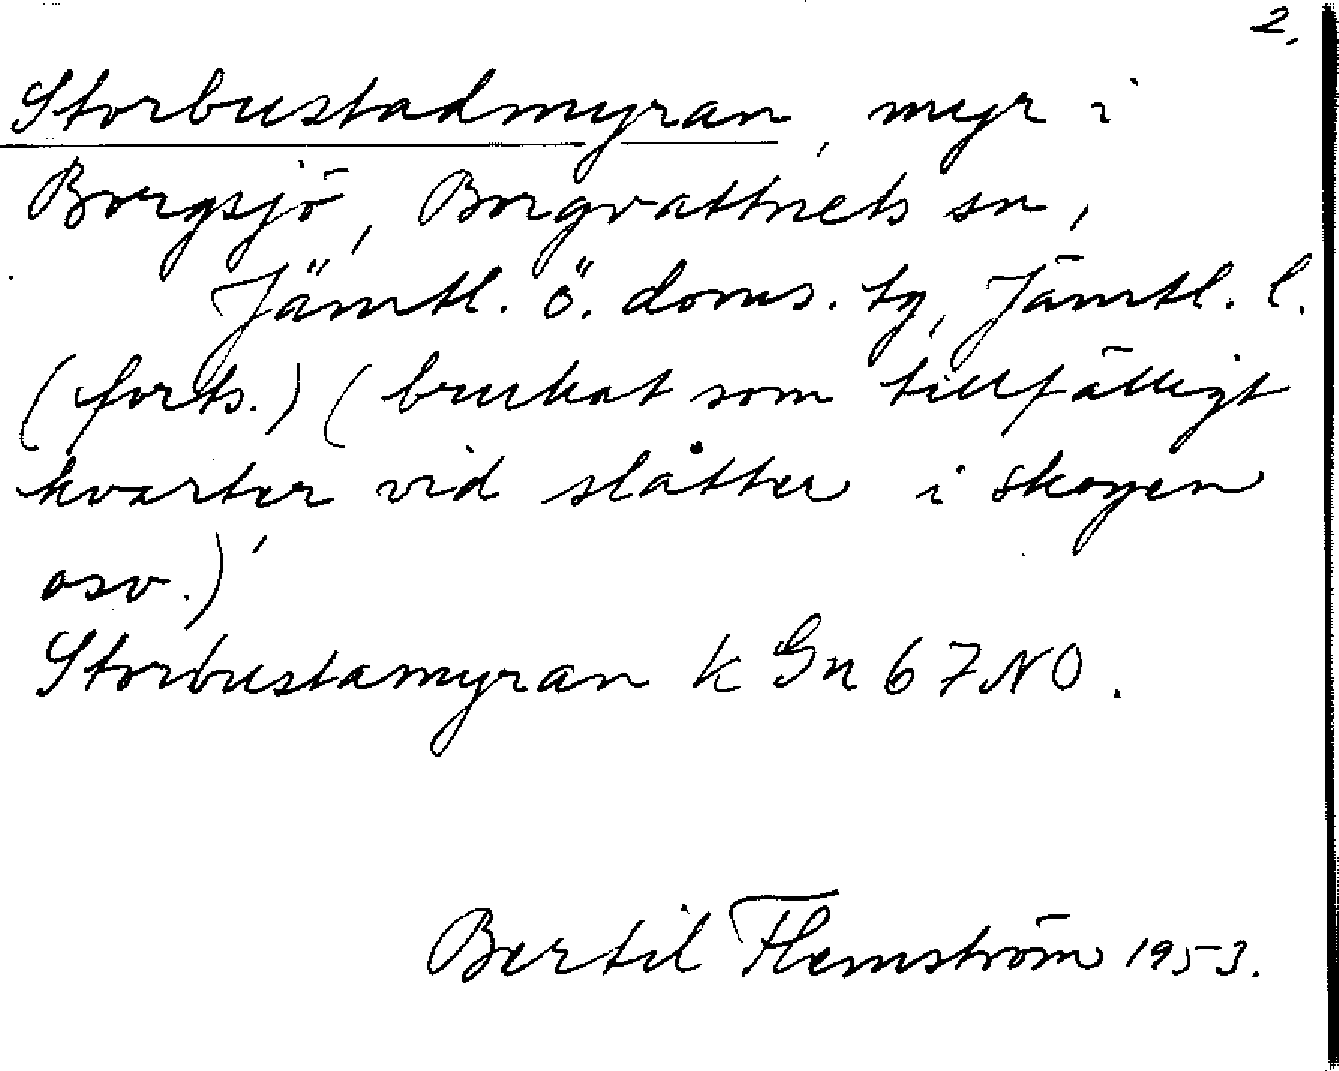 2.
Storbustadmyran, myr i
Borgsjö, Borgvattnets sn,
Jämtl. ö. doms. tg, Jämtl. l.
(forts.) (brukat som tillfälligt
kvarter vid slåtter i skogen
osv.)'
Storbustamyran k Gn 67 NO.
Bertil Flemström 1953.